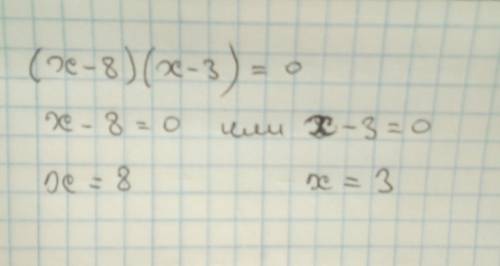 (x-8)(x-3) = 0
x - 8 = 0 или x - 3 = 0
x = 8 x = 3